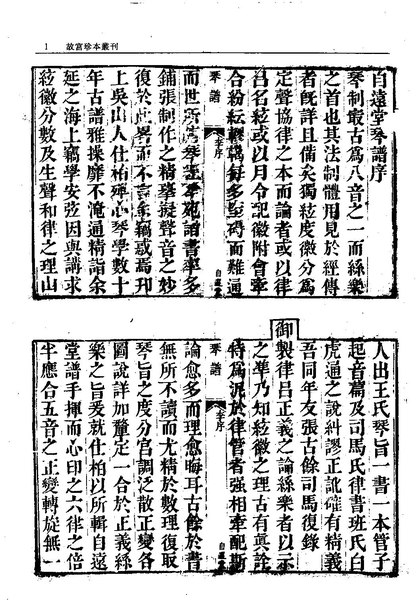 1 故宮珍本叢刊
自遠堂琴譜序
琴制最古為八音之一而絲樂
之首也其法制體用見於經傳
者既詳且備矣獨絃度徽分為
定聲協律之本而論者或以律
呂名絃或以月令記徽附會牽
合紛紜轇轕每多窒碍而難通
琴譜 李序
而世所傳琴經琴苑諸書率多
鋪張制作之精摹擬聲音之妙
復於此畧而不言余竊惑焉邗
上吳山人仕柏殫心琴學數十
年古譜雅操靡不淹通精詣余
延之海上竊學安弦因與講求
絃徽分數及生聲和律之理山
人出王氏琴旨一書一本管子
起音篇及司馬氏律書班氏白
虎通之說糾謬正訛確有精義
吾同年友張古餘司馬復錄
御製律呂正義之論絲樂者以示
之準乃知絃徽之理古有真詮
特為泥於律管者強相牽配斯
琴譜 李序
論愈多而理愈晦耳古餘於書
無所不讀而尤精於數理復取
琴旨之度分宮調泛散正變各
圖說詳加釐定一合於正義絲
樂之旨爰就仕柏以所輯自遠
堂譜手揮而心印之六律之倍
半應合五音之正變轉旋無一